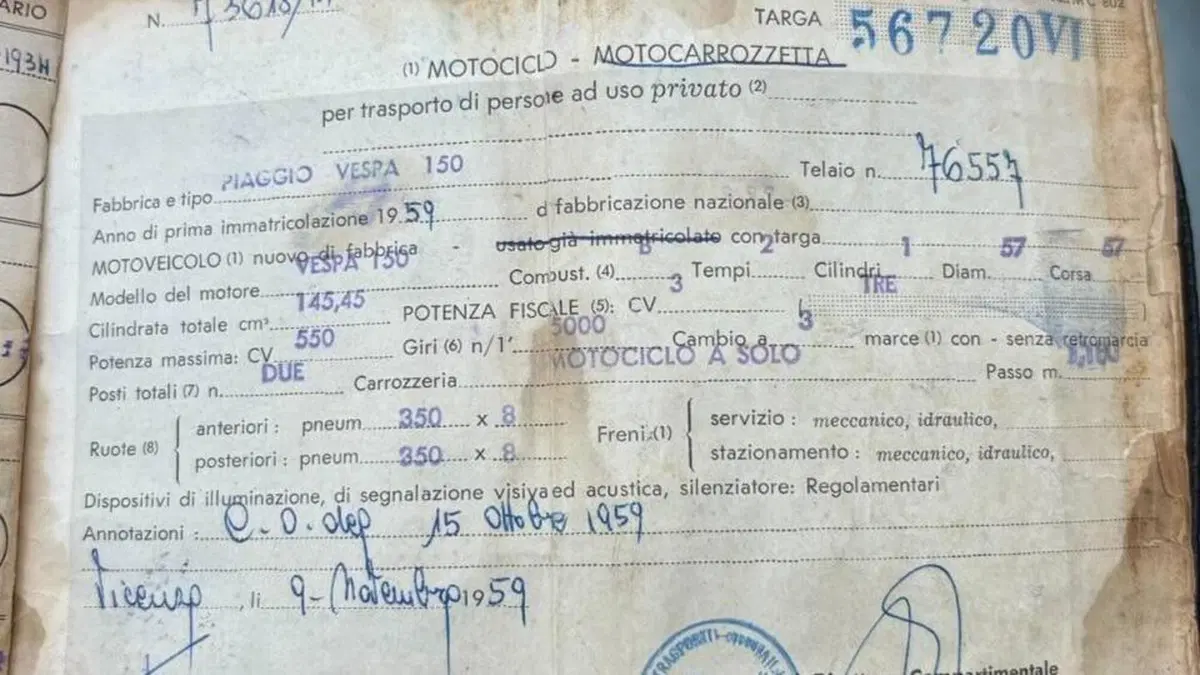 ARIO
193H
N. 73615/
TARGA 56720VI
(1) MOTOCICLO - MOTOCARROZZETTA
per trasporto di persone ad uso privato (2)
Fabbrica e tipo PIAGGIO VESPA 150 Telaio n. 76557
Anno di prima immatricolazione 1959 d fabbricazione nazionale (3)
MOTOVEICOLO (1) nuovo di fabbrica - usato già immatricolato con targa
Modello del motore VESPA 150 Combust. (4) B Tempi 2 Cilindri 1 Diam. 57 Corsa 57
Cilindrata totale cm³ 145,45 POTENZA FISCALE (5): CV 3 ( TRE )
Potenza massima: CV 550 Giri (6) n/1' 5000 Cambio a 3 marce (1) con - senza retromarcia
Posti totali (7) n. DUE Carrozzeria MOTOCICLO A SOLO Passo m.
Ruote (8) anteriori: pneum. 350 x 8 Freni (1) servizio: meccanico, idraulico,
posteriori: pneum. 350 x 8 stazionamento: meccanico, idraulico,
Dispositivi di illuminazione, di segnalazione visiva ed acustica, silenziatore: Regolamentari
Annotazioni: C.O. dep 15 Ottobre 1959
Vicenza, li 9-Novembre 1959
TRASPORTI
Compartimentale